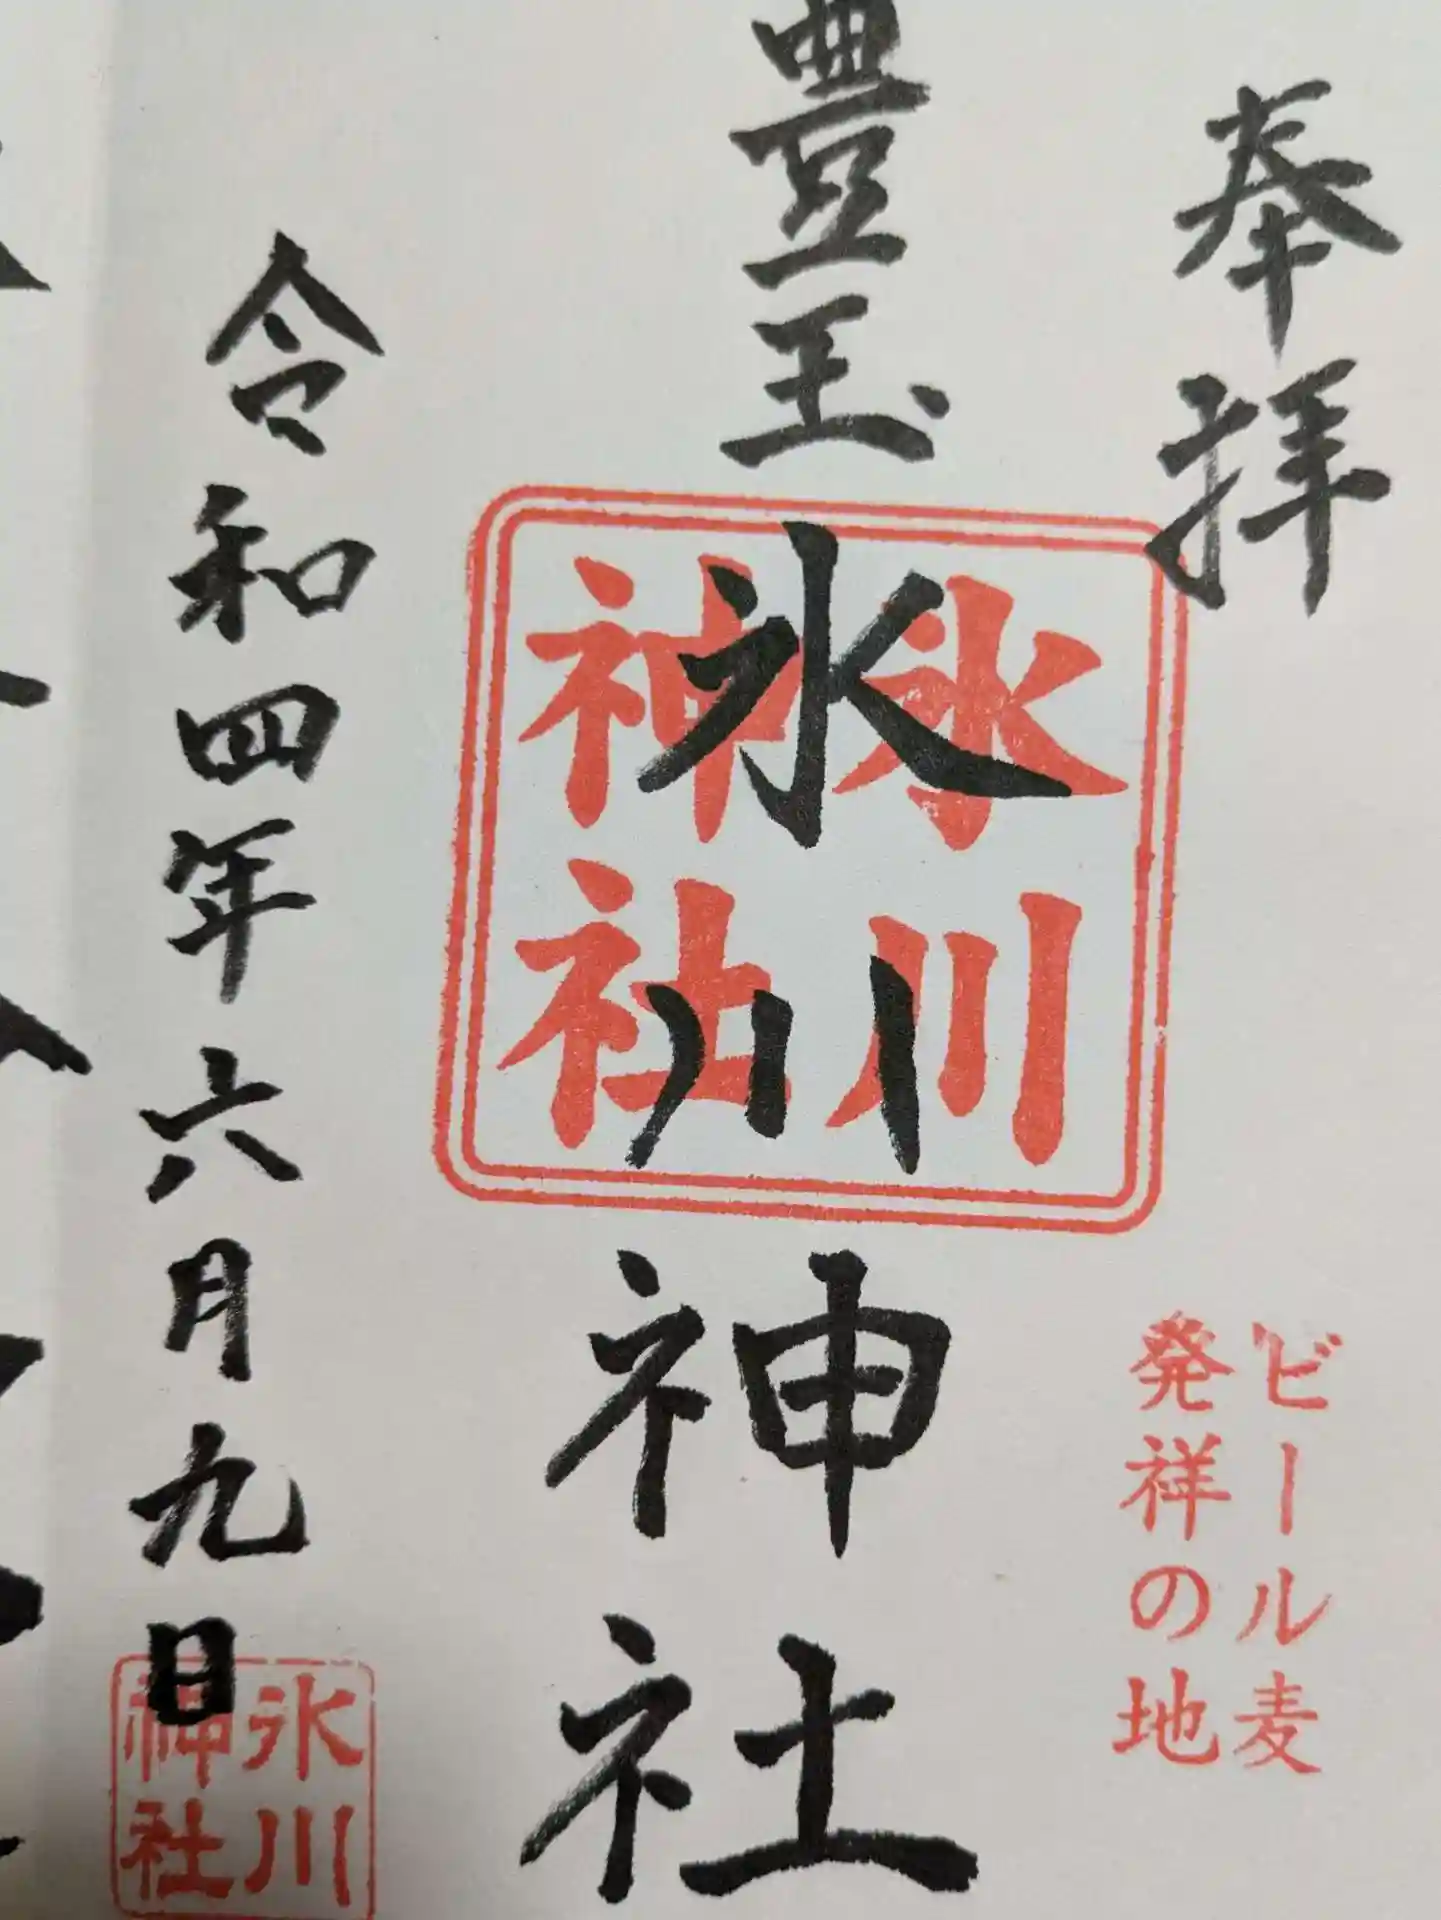 奉拝
ビール麦
発祥の地
豊玉
氷川神社
氷川
神社
令和四年六月九日
氷川
神社